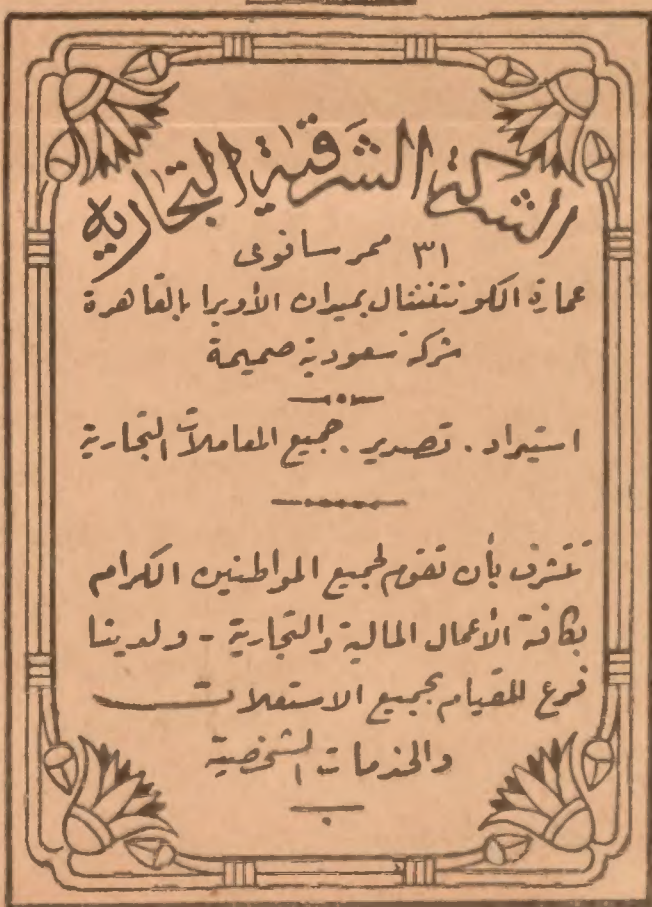 الشركة الشرقية التجارية
٣١ ممر سانوى
عمارة الكونتننتال بميدان الأوبرا بالقاهرة
شركة سعودية صميمة
استيراد . تصدير . جميع المعاملات التجارية
تتشرف بأن تقوم لجميع المواطنين الكرام
بكافة الأعمال المالية والتجارية - ولدينا
فرع للقيام بجميع الاستعلامات
والخدمات الشخصية